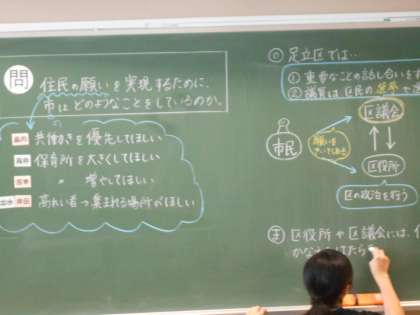 問
住民の願いを実現するために、
市はどのようなことをしているのか。
共働きを優先してほしい
保育所を大きくしてほしい
〃 増やしてほしい
高れい者が集まれる場所がほしい
足立区では…
① 重要なことの話し合いをす
② 議員は、区民の
区議会
市民
区役所
区の政治を行う
ま 区役所や区議会には、
かなえ